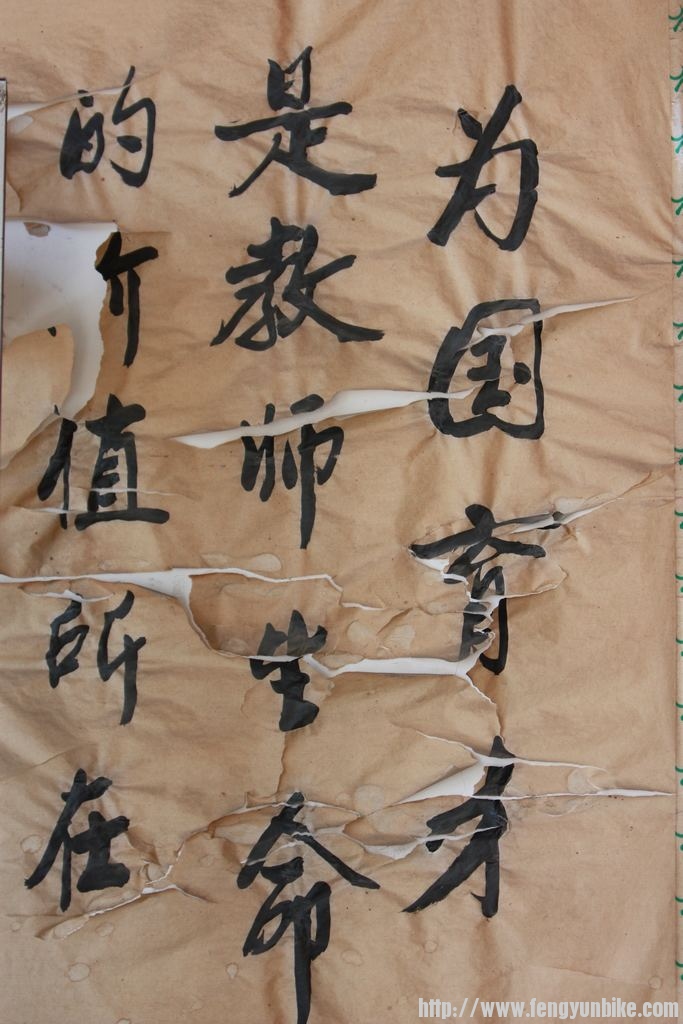 为国育才
是教师生命
的价值所在
http://www.fengyunbike.com